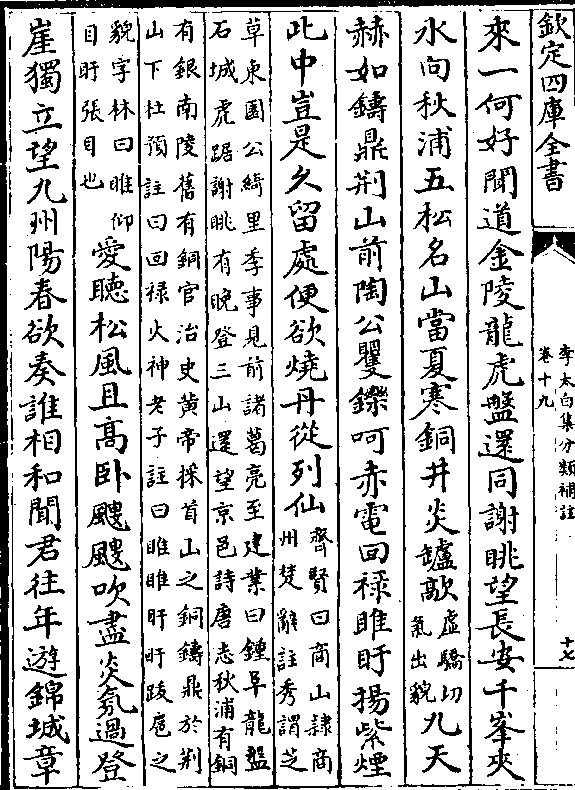 欽定四庫全書
李太白集分類補註
卷十九
十七
來一何好聞道金陵龍虎盤還同謝眺望長安千峯夾
水向秋浦五松名山當夏寒銅井炎罏歊虛驕切氣出貌九天
赫如鑄鼎荆山前陶公矍鑠呵赤電回禄睢盱揚紫煙
此中豈是久留處便欲燒丹從列仙齊賢曰商山隷商州楚辭註秀謂芝
草東園公綺里季事見前諸葛亮至建業曰鍾阜龍盤
石城虎踞謝眺有晚登三山還望京邑詩唐志秋浦有銅
有銀南陵舊有銅官冶史黃帝採首山之銅鑄鼎於荆
山下杜預註曰回禄火神老子註曰睢睢盱盱跋扈之
貌字林曰睢仰目盱張目也愛聽松風且高卧颼颼吹盡炎氛過登
崖獨立望九州陽春欲奏誰相和聞君往年遊錦城章